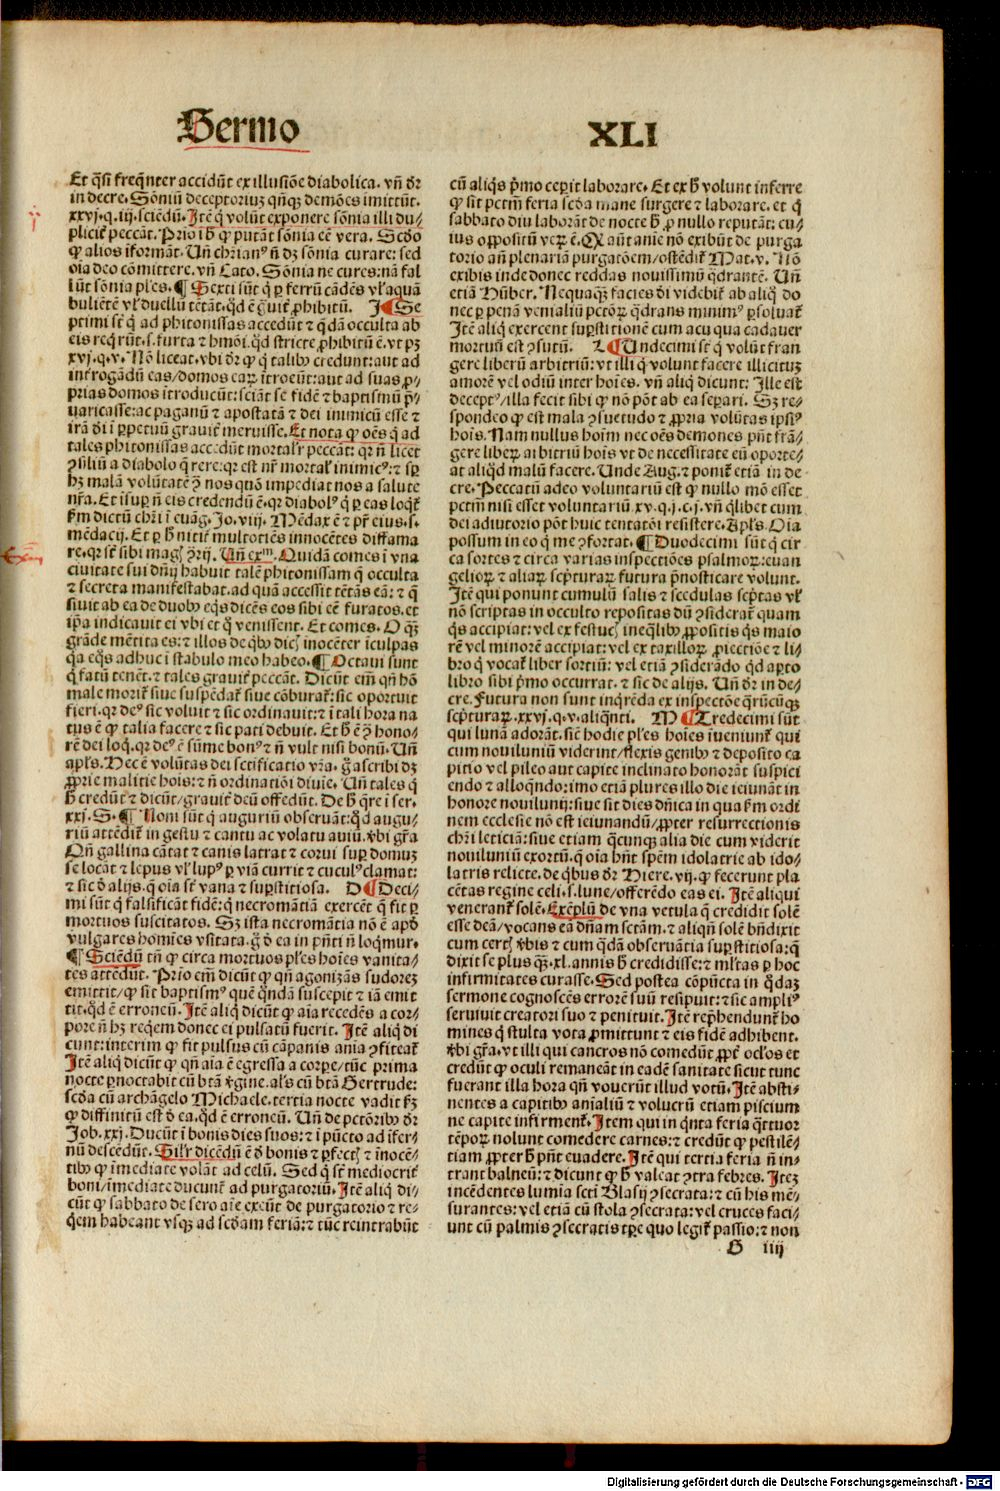 Sermo XLI
Et q̄si freq̄nter accidūt ex illusiōe diabolica. vn̄ dr̄
in decre. Sōniū deceptoriuʒ qn̄qʒ demōes imittūt.
xxvj. q. iij. sciēdū. Itē q̇ volūt exponere sōnia illi du/
plicit̄ peccāt. Prīo i h̄ qꝛ putāt sōnia eē vera. Scd̄o
qꝛ alios īformāt. Vn̄ chrīanꝰ n̄ dʒ sōnia curare: sed
oīa deo cōmittere. vn̄ Cato. Sōnia ne cures: nā fal
lūt sōnia pl̄es. ¶ Sexti sūt q̇ ꝑ ferrū cādēs vl̓ aquā
buliētē vl̓ duellū tētāt. qd̓ ē ḡuit̄ ꝓhibitū. I ¶ Se
ptimi sūt q̇ ad phitonissas accedūt ⁊ q̄dā occulta ab
eis req̇rūt. s. furta ⁊ hmōi. qd̓ stricte ꝓhibitū ē. vt pʒ
xvj. q. v. Nō liceat. vbi dr̄ qꝛ q̇ talibꝰ credunt: aut ad
īterrogādū eas/domos eaꝝ ītroeūt: aut ad suas ꝓ/
prias domos ītroducūt: sciāt se fidē ⁊ baptismū p̄/
uaricasse: ac paganū ⁊ apostatā ⁊ dei inimicū esse ⁊
irā dī ī ꝑpetuū grauit̄ meruisse. Et nota qꝛ oēs q̇ ad
tales phitonissas accedūt mortalr̄ peccāt: qꝛ n̄ licet
ꝯsiliū a diabolo q̄rere: qꝛ est nr̄ mortal̓ inimicꝰ: ⁊ sꝑ
hʒ malā volūtatē ꝯ̄ nos quō impediat nos a salute
nr̄a. Et īsuꝑ n̄ eis credendū ē. qꝛ diabolꝰ q̇ ꝑ eas loqt̄
ẜm dictū chr̄i ī euāg. Jo. viij. Mēdax ē ⁊ pr̄ eius. s.
mēdacij. Et ꝑ h̄ nitit̄ multotiēs innocētes diffama
re. qꝛ st̄ sibi magꝭ ꝯ̄rij. Vn̄ exᵐ. Quidā comes ī vna
ciuitate sui dn̄ij habuit talē phitonissam q̄ occulta
⁊ secreta manifestabat. ad quā accessit tētās eā: ⁊ q̄
siuit ab ea de duobꝰ eq̄s dicēs eos sibi eē furatos. et
ip̄a indicauit ei vbi et q̇ venissent. Et comes. O qʒ
grāde mētita es: ⁊ illos de q̇bꝰ dicꝭ inocēter īculpas
q̇a eq̄s adhuc ī stabulo meo habeo. ¶ Octaui sunt
q̇ fatū tenēt. ⁊ tales grauit̄ peccāt. Dicūt em̄ qn̄ hō
male morit̄ siue suspēdat̄ siue cōburat̄: sic oportuit
fieri. qꝛ deꝰ sic voluit ⁊ sic ordinauit: ⁊ ī tali hora na
tꝰ ē qꝛ talia facere ⁊ sic pati debuit. Et h̄ ē ꝯ̄ hono/
rē dei loq̇. qꝛ deꝰ ē sūme bonꝰ ⁊ n̄ vult nisi bonū. Vn̄
apl̄s. Hec ē volūtas dei sctificatio vr̄a. ḡ ascribi dʒ
ꝓprie malitie hoīs: ⁊ n̄ ordinatiōi diuīe. Vn̄ tales q̇
h̄ credūt ⁊ dicūt/grauit̄ deū offēdūt. De h̄ q̄re ī ser.
xxj. S. ¶ Noni sūt q̇ auguriū obseruāt: qd̓ augu/
riū attēdit̄ in gestu ⁊ cantu ac volatu auiū. v̓bi gr̄a
Qn̄ gallina cātat ⁊ canis latrat ⁊ corui suꝑ domuʒ
se locāt ⁊ lepus vl̓ lupꝰ ꝑ viā currit ⁊ cuculꝰ clamat:
⁊ sic d̓ alijs. q̄ oīa st̄ vana ⁊ suꝑstitiosa. D ¶ Deci/
mi sūt q̇ falsificāt fidē: q̇ necromātiā exercēt q̄ fit ꝑ
mortuos suscitatos. Sʒ ista necromātia nō ē apd̓
vulgares homīes vsitata. ḡ d̓ ea in pn̄ti n̄ loqmur.
¶ Sciēdū tn̄ qꝛ circa mortuos pl̄es hoīes vanita/
tes attēdūt. Prīo em̄ dicūt qꝛ qn̄ agonizās sudoreʒ
emittit/qꝛ sit baptismꝰ quē q̄ndā suscepit ⁊ iā emit
tit. qd̓ ē erroneū. Itē aliq̇ dicūt qꝛ aīa recedēs a cor/
pore n̄ hʒ reqēm donec ei pulsatū fuerit. Itē aliq̇ di
cunt: interim qꝛ fit pulsus cū cāpanis anīa ꝯfiteat̄
Itē aliq̇ dicūt qꝛ qn̄ aīa ē egressa a corpe/tūc prima
nocte ꝑnoctabit cū btā v̓gine. al̓s cū btā Gertrude:
scd̄a cū archāgelo Michaele. tertia nocte vadit ẜʒ
qꝛ diffinitū est d̓ ea. qd̓ ē erroneū. Vn̄ de pctōribꝰ dr̄
Job. xxj. Ducūt ī bonis dies suos: ⁊ ī pūcto ad īfer/
nū descēdūt. Silr̄ dicēdū ē d̓ bonis ⁊ ꝑfectꝭ ⁊ inocē/
tibꝰ qꝛ īmediate volāt ad celū. Sed q̇ st̄ mediocrit̄
boni/īmediate ducunt̄ ad purgatoriū. Itē aliq̇ di/
cūt qꝛ sabbato de sero aīe exeūt de purgatorio ⁊ re/
q̇em habeant vsqʒ ad scd̄am feriā: ⁊ tūc reintrabūt
cū aliq̇s pͥmo ceperit laborare. Et ex h̄ volunt inferre
qꝛ sit pctm̄ feria scd̄a mane surgere ⁊ laborare. et q̇
sabbato diu laborāt de nocte h̄ ꝓ nullo reputāt: cu/
ius oppositū veꝝ ē. Qꝛ aūt anīe nō exibūt de purga
torio an̄ plenariā purgatōem/ostēdit̄ Mat. v. Nō
exibis inde donec reddas nouissimū q̄drantē. Vn̄
etiā Huber. Nequaqʒ facies dī videbit̄ ab aliq̇ do
nec ꝑ penā venialiū pctōꝝ q̄drans minimꝰ ꝑsoluat̄
Itē aliq̇ exercent suꝑstitionē cum acu qua cadauer
mortuū est ꝯsutū. L ¶ Undecimi st̄ q̇ volūt fran
gere liberū arbitriū: vt illi q̇ volunt facere illicituʒ
amorē vel odiū inter hoīes. vn̄ aliq̇ dicunt: Ille est
deceptꝰ/illa fecit sibi qꝛ nō pōt ab ea seꝑari. Sʒ re/
spondeo qꝛ est mala ꝯsuetudo ⁊ ꝓpria volūtas ipsiꝰ
hoīs. Nam nullus hoīm nec oēs demones pn̄t frā/
gere libeꝝ arbitriū hoīs vt de necessitate eū oporte/
at aliqd̓ malū facere. Unde Aug. ⁊ ponit̄ etiā in de/
cre. Peccatū adeo voluntariū est qꝛ nullo mō esset
pctm̄ nisi esset voluntariū xv. q. j. c. j. vn̄ q̇libet cum
dei adiutorio pōt huic tentatōi resistere. Apl̄s. Oīa
possum in eo q̇ me ꝯfortat. ¶ Duodecimi sūt q̇ cir
ca sortes ⁊ circa varias inspectiōes psalmoꝝ: euan
gelioꝝ ⁊ aliaꝝ sc̓pturaꝝ futura p̄nosticare volunt.
Itē qui ponunt cumulū salis ⁊ scedulas sc̓ptas vl̓
nō scriptas in occulto repositas dū ꝯsiderāt quam
q̇s accipiat: vel ex festucꝭ ineq̄libꝰ ꝓpositis q̇s maio
rē vel minorē accipiat: vel ex taxilloꝝ ꝓiectiōe ⁊ li/
bro q̇ vocat̄ liber sortiū: vel etiā ꝯsiderādo qd̓ aꝑto
libro sibi pͥmo occurrat. ⁊ sic de alijs. Un̄ dr̄ in de/
cre. Futura non sunt inq̇rēda ex inspectōe q̄rūcūqʒ
sc̓pturaꝝ. xxvj. q. v. aliqn̄ti. M ¶ Tredecimi sūt
qui lunā adorāt. sic̄ hodie pl̄es hoīes īueniunt̄ qui
cum nouiluniū viderint/flexis genibꝰ ⁊ deposito ca
pitio vel pileo aut capite inclinato honorāt suspici
endo ⁊ alloq̄ndo: imo etiā plures illo die ieiunāt in
honore nouilunij: siue sit dies dn̄ica in qua ẜm ordi
nem ecclesie nō est ieiunandū/ꝓpter resurrectionis
chr̄i leticiā: siue etiam q̄cunqʒ alia die cum viderit
nouiluniū exortū. q̄ oīa hn̄t spēm idolatrie ab ido/
latris relicte. de q̇bus dr̄ Hiere. vij. qꝛ fecerunt pla
cētas regine celi. s. lune/offerēdo eas ei. Itē aliqui
venerant̄ solē. Exēplū de vna vetula q̄ credidit solē
esse deā/vocans eā dn̄am sctam. ⁊ aliqn̄ solē bn̄dixit
cum certꝭ v̓bis ⁊ cum q̄dā obseruātia suꝑstitiosa: q̄
dixit se plus qʒ. xl. annis h̄ credidisse: ⁊ ml̓tas ꝑ hoc
infirmitates curasse. Sed postea cōpūcta in q̇daʒ
sermone cognoscēs errorē suū resipuit: ⁊ sic ampliꝰ
seruiuit creatori suo ⁊ penituit. Itē rep̄hendunt̄ ho
mines q̇ stulta vota ꝓmittunt ⁊ eis fidē adhibent.
v̓bi gr̄a. vt illi qui cancros nō comedūt ꝓpt̄ ocl̓os et
credūt qꝛ oculi remaneāt in eadē sanitate sicut tunc
fuerant illa hora qn̄ vouerūt illud votū. Itē absti/
nentes a capitibꝰ anīaliū ⁊ volucrū etiam piscium
ne capite infirment̄. Item qui in q̇nta feria q̄ttuor
tēpoꝝ nolunt comedere carnes: ⁊ credūt qꝛ pestilē/
tiam ꝓpter h̄ pn̄t euadere. Itē qui tertia feria n̄ in/
trant balneū: ⁊ dicunt qꝛ h̄ valeat ꝯtra febres. Iteʒ
incēdentes lumīa scti Blasij ꝯsecrata: ⁊ cū his mē/
surantes: vel etiā cū stola ꝯsecrata: vel cruces faci/
unt cū palmis ꝯsecratis tꝑe quo legit̄ passio: ⁊ non
G iiij
Exᵐ
Digitalisierung gefördert durch die Deutsche Forschungsgemeinschaft - DFG